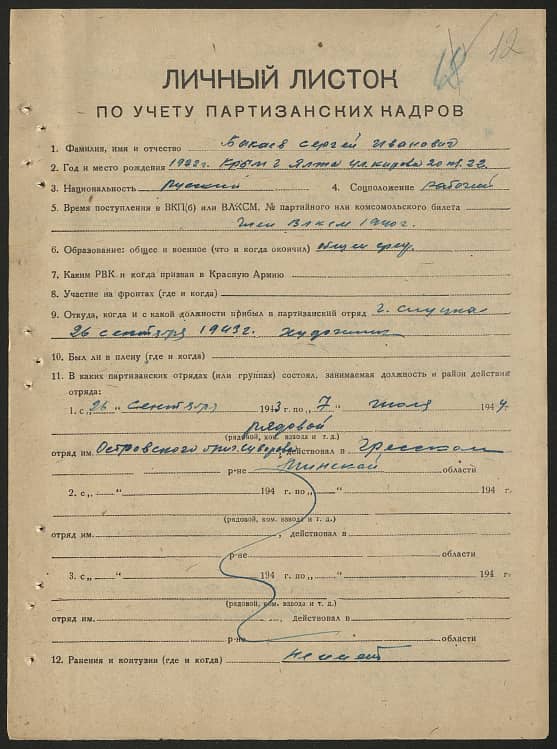 12
ЛИЧНЫЙ ЛИСТОК
ПО УЧЕТУ ПАРТИЗАНСКИХ КАДРОВ
1. Фамилия, имя и отчество Бакаев Сергей Иванович
2. Год и место рождения 1922г. Крым г Ялта ул. Кирова 20 кв. 22.
3. Национальность Русский 4. Соцположение рабочий
5. Время поступления в ВКП(б) или ВЛКСМ, № партийного или комсомольского билета
член ВЛКСМ 1940г.
6. Образование: общее и военное (что и когда окончил) общее сред.
7. Каким РВК и когда призван в Красную Армию
8. Участие на фронтах (где и когда)
9. Откуда, когда и с какой должности прибыл в партизанский отряд г. Слуцка
26 сентября 1943г. художник
10. Был ли в плену (где и когда)
11. В каких партизанских отрядах (или группах) состоял, занимаемая должность и район действия
отряда:
1. с „26“ сентября 1943 г. по „7“ июля 1944 г.
рядовой
(рядовой, ком. взвода и т. д.)
отряд им. Островского бриг. Суворова, действовал в Гресском
р-не Минской области
2. с „ “ 194 г. по „ “ 194 г.
(рядовой, ком. взвода и т. д.)
отряд им. , действовал в
р-не области
3. с „ “ 194 г. по „ “ 194 г.
(рядовой, ком. взвода и т. д.)
отряд им. , действовал в
р-не области
12. Ранения и контузии (где и когда) не имеет